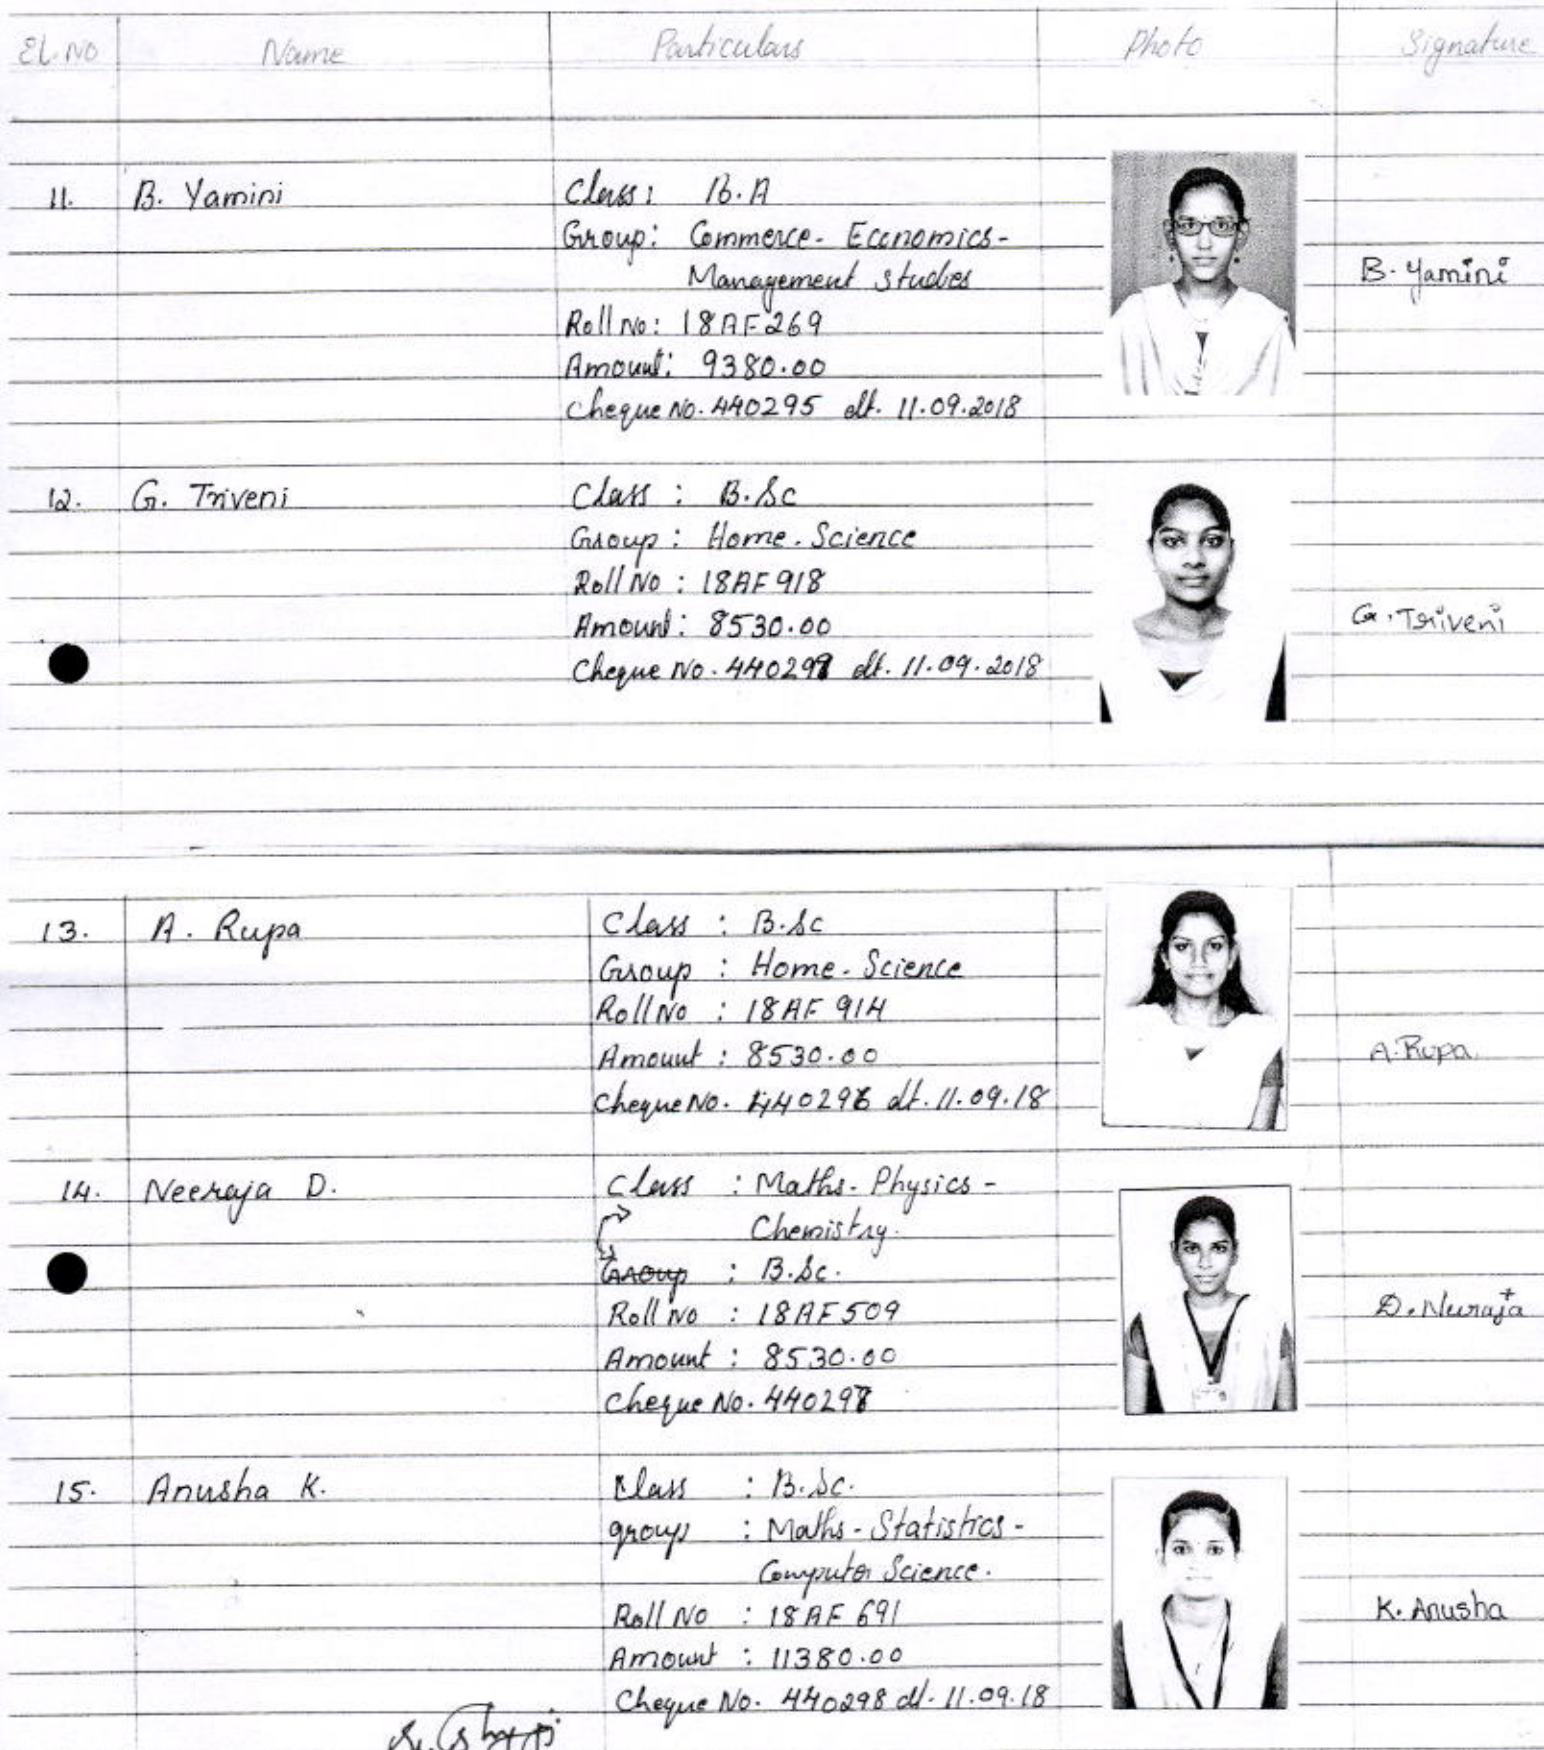 Sl.No Name Particulars Photo Signature
11. B. Yamini Class: B.A
Group: Commerce- Economics-
Management studies
B. Yamini
Roll No: 18AF269
Amount: 9380.00
Cheque No. 440295 dt. 11.09.2018
12. G. Triveni Class : B.Sc
Group : Home. Science
Roll No : 18AF918
G. Triveni
Amount: 8530.00
Cheque No. dt. 11.09.2018
13. A. Rupa Class : B.Sc
Group : Home. Science
Roll No : 18AF 914
A. Rupa
Amount : 8530.00
Cheque No. 440296 dt. 11.09.18
14. Neeraja D. Class : Maths- Physics -
Chemistry.
Group : B.Sc.
Roll No : 18AF509
D. Neeraja
Amount : 8530.00
Cheque No. 440297
15. Anusha K. Class : B.Sc.
group : Maths - Statistics -
Computer Science.
Roll No : 18AF 691
K. Anusha
Amount : 11380.00
Cheque No. 440298 dt. 11.09.18